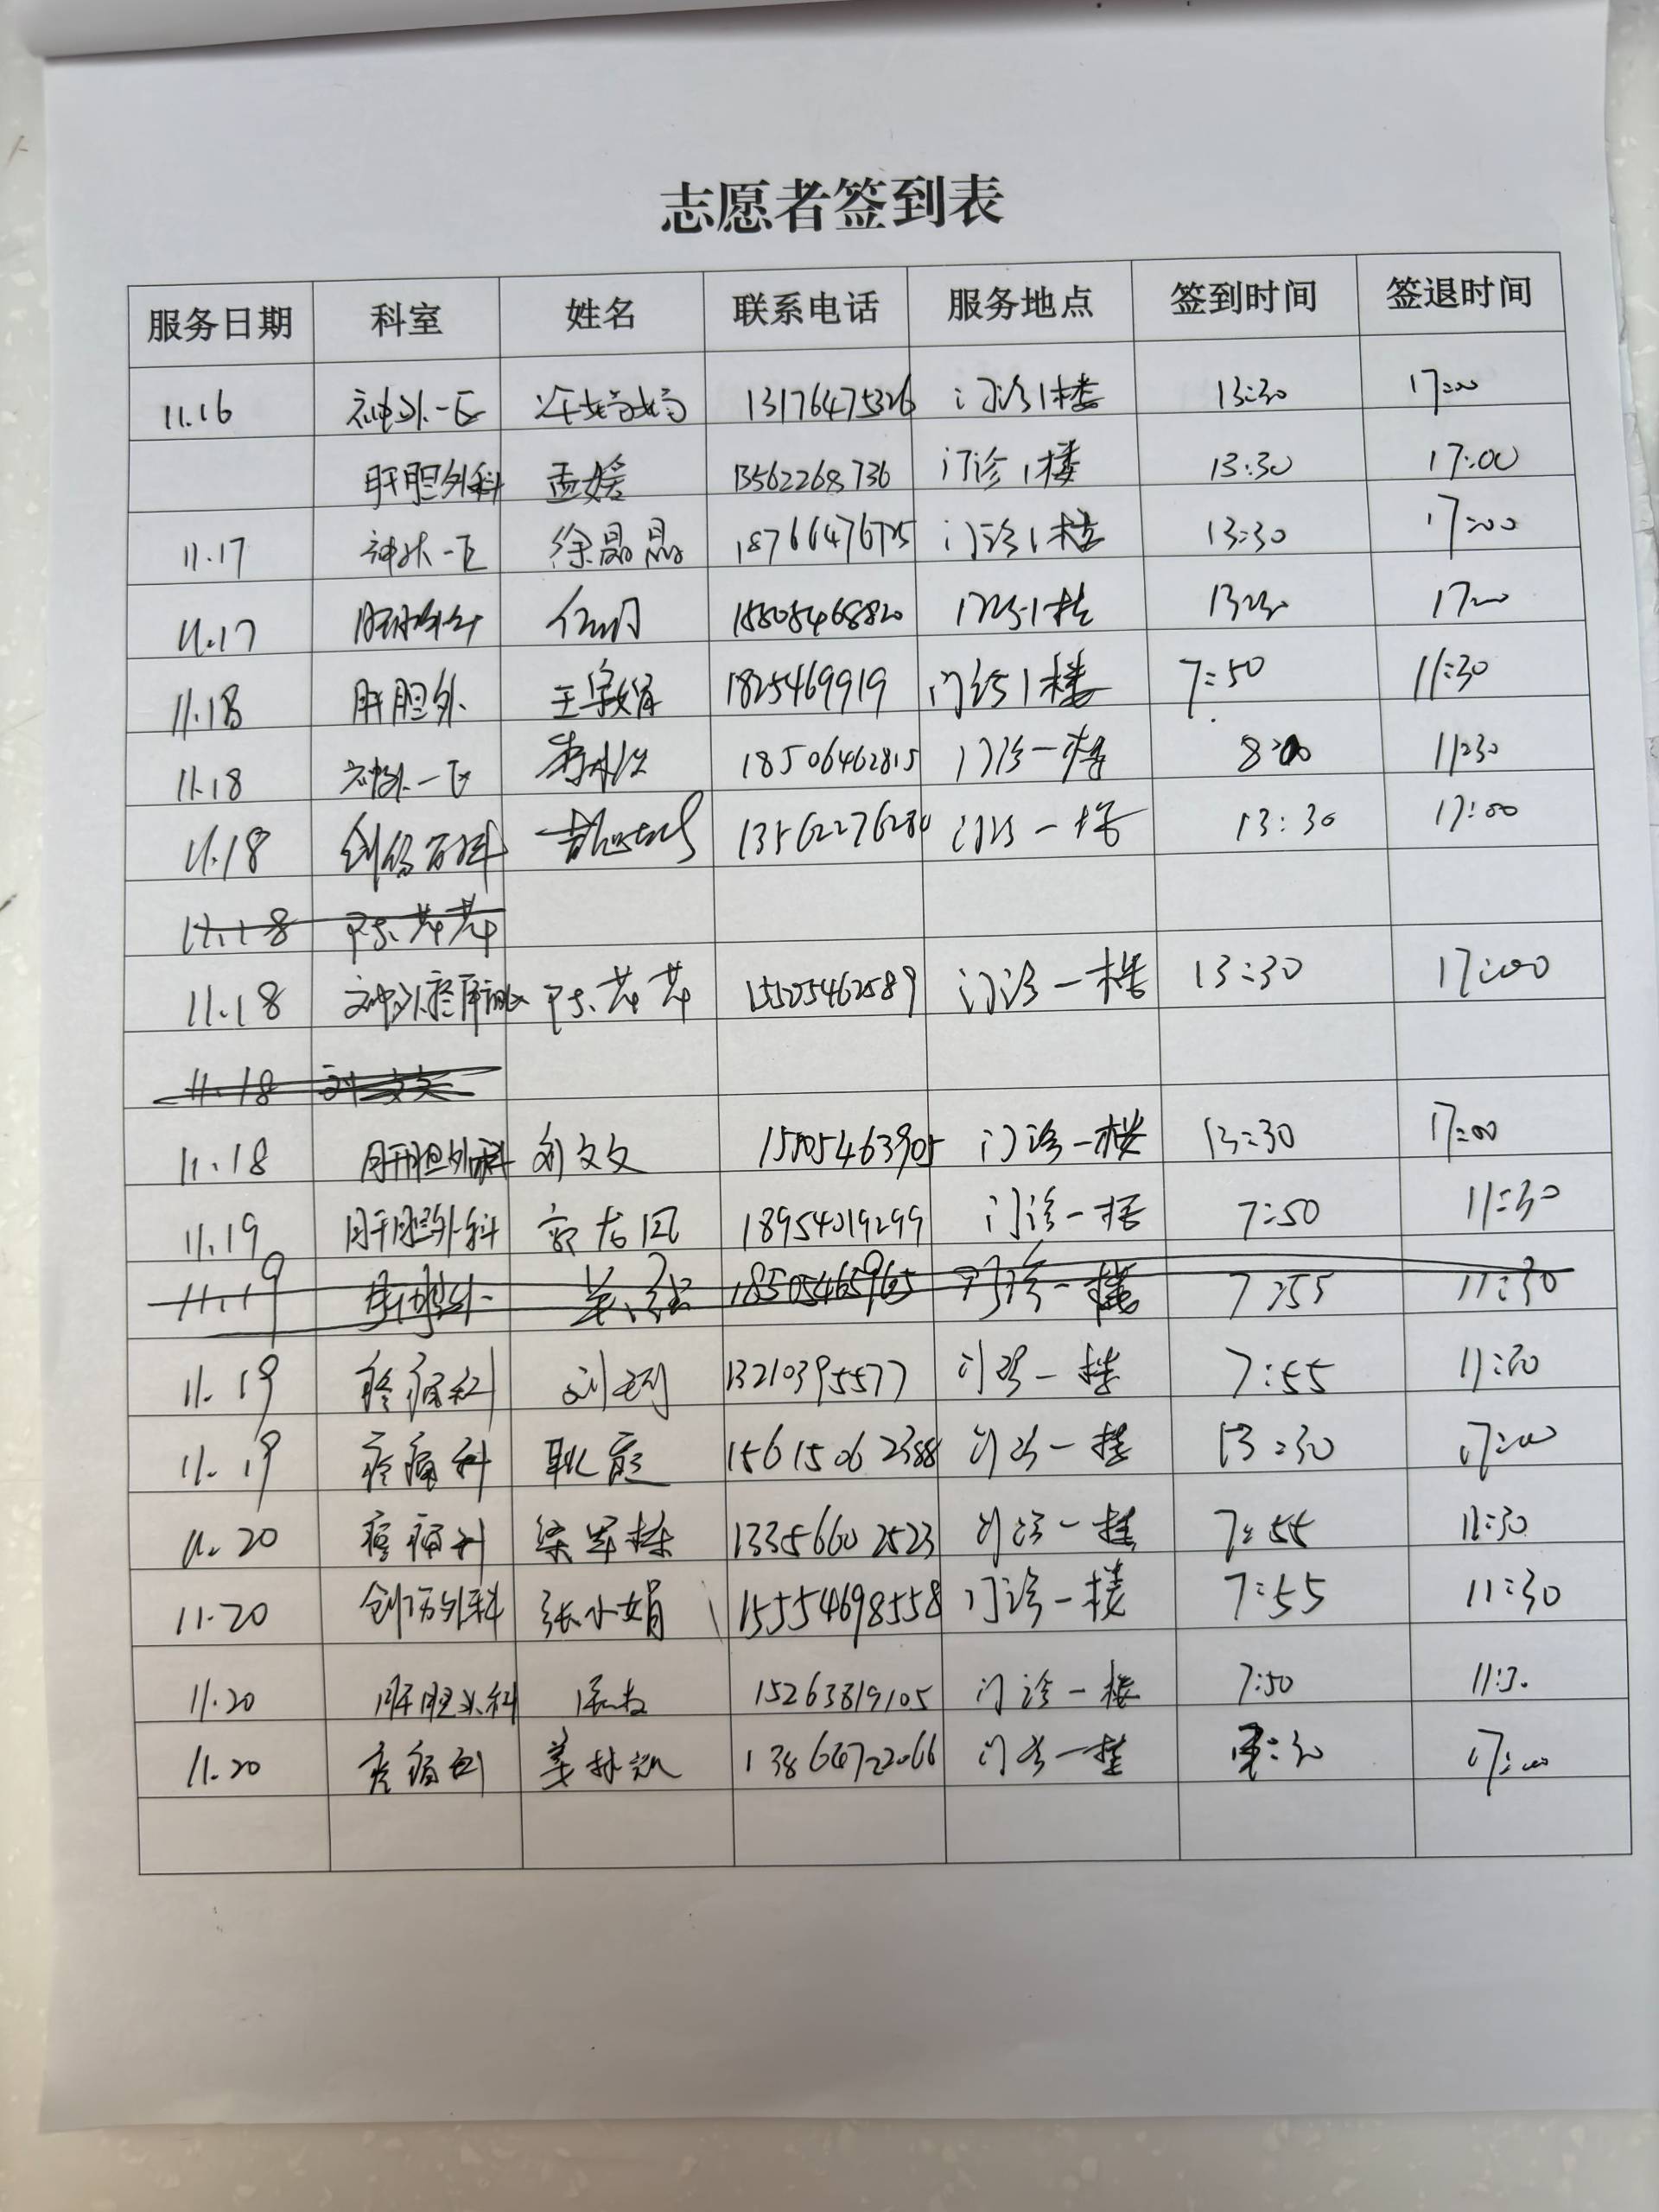 志愿者签到表
服务日期 科室 姓名 联系电话 服务地点 签到时间 签退时间
11.16 神外一区 13176475326 门诊1楼 13:30 17:00
肝胆外科 孟媛 13562268736 门诊1楼 13:30 17:00
11.17 神外一区 徐晶晶 18766476725 门诊1楼 13:30 17:00
11.17 15805468820 门诊1楼 13:30 17:00
11.18 肝胆外 王 1825469919 门诊1楼 7:50 11:30
11.18 神外一区 18506462815 门诊一楼 8:00 11:30
11.18 13562276284 门诊一楼 13:30 17:00
11.18 陈芹芹
11.18 陈芹芹 门诊一楼 13:30 17:00
11.18 刘文文
11.18 肝胆外科 刘文文 15505463905 门诊一楼 13:30 17:00
11.19 肝胆外科 18954019299 门诊一楼 7:50 11:30
11.19 18505465965 门诊一楼 7:55 11:30
11.19 疼痛科 13210395577 门诊一楼 7:55 11:30
11.19 疼痛科 耿 15615062388 门诊一楼 13:30 17:00
11.20 疼痛科 梁军栋 13356602523 门诊一楼 7:55 11:30
11.20 创伤外科 张小娟 15554698558 门诊一楼 7:55 11:30
11.20 肝胆外科 15263819105 门诊一楼 7:50 11:30
11.20 疼痛科 姜 13864722066 门诊一楼 17:00